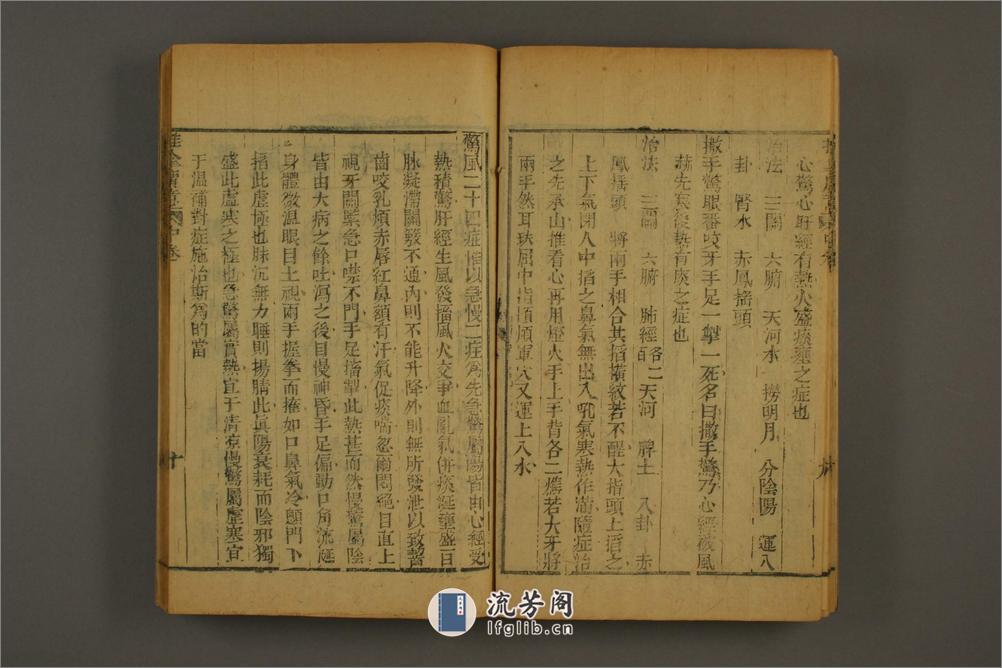 心驚心肝經有熱火盛痰壅之症也
治法 三關 六腑 天河水 撈明月 分陰陽 運八
卦 腎水 赤鳳搖頭
撒手驚眼番咬牙手足一掣一死名曰撒手驚乃心經被風
先寒後熱有痰之症也
治法 三關 六腑 肺經各二百 天河 脾土 入卦 赤
鳳搖頭 將兩手相合其掐橫紋若不醒大指頭上掐之
上下氣閉人中掐之鼻氣無出入吼氣寒熱作滿隨症治
之先承山推看心再用燈火手上手背各二燋若大牙將
兩手然耳珠屈中指頂 軍穴又運上入水
驚風二十四症惟以急慢二症為先急驚屬陽皆由心經受
熱積驚肝經生風發搐風火交爭血亂氣併痰涎壅盛百
脉凝滯關竅不通內則不能升降外則無所發泄以致嚙
齒咬乳頰赤唇紅鼻額有汗氣促痰喘忽爾悶絶目直上
視牙關緊急口噤不開手足搐掣此熱甚而然慢驚屬陰
皆由大病之餘吐瀉之後目慢神昏手足偏動口角流涎
身體微温眼目上視兩手握拳而搐如口鼻氣冷顖門下
陷此虛極也脉沉無力睡則揚睛此真陽衰耗而陰邪獨
盛此虛寒之極也急驚屬實熱宜于清凉慢驚屬虛寒宜
于温補對症施治斯為的當
十
流芳阁
lfglib.cn